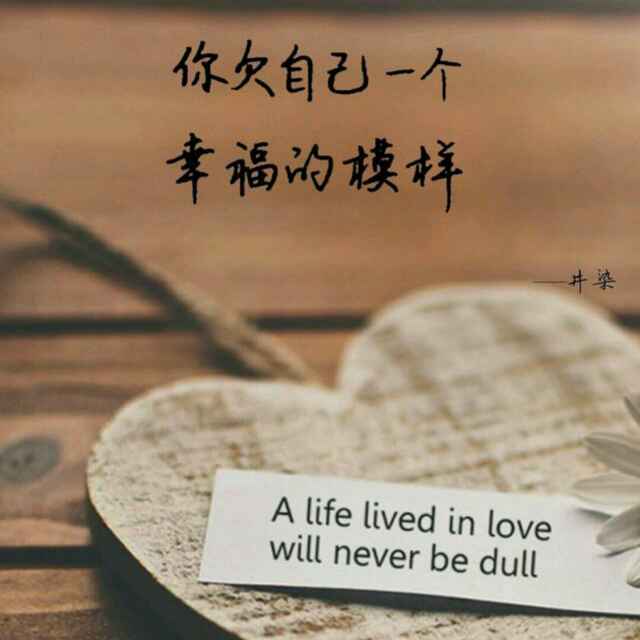 你欠自己一个
幸福的模样
——井染
A life lived in love
will never be dull